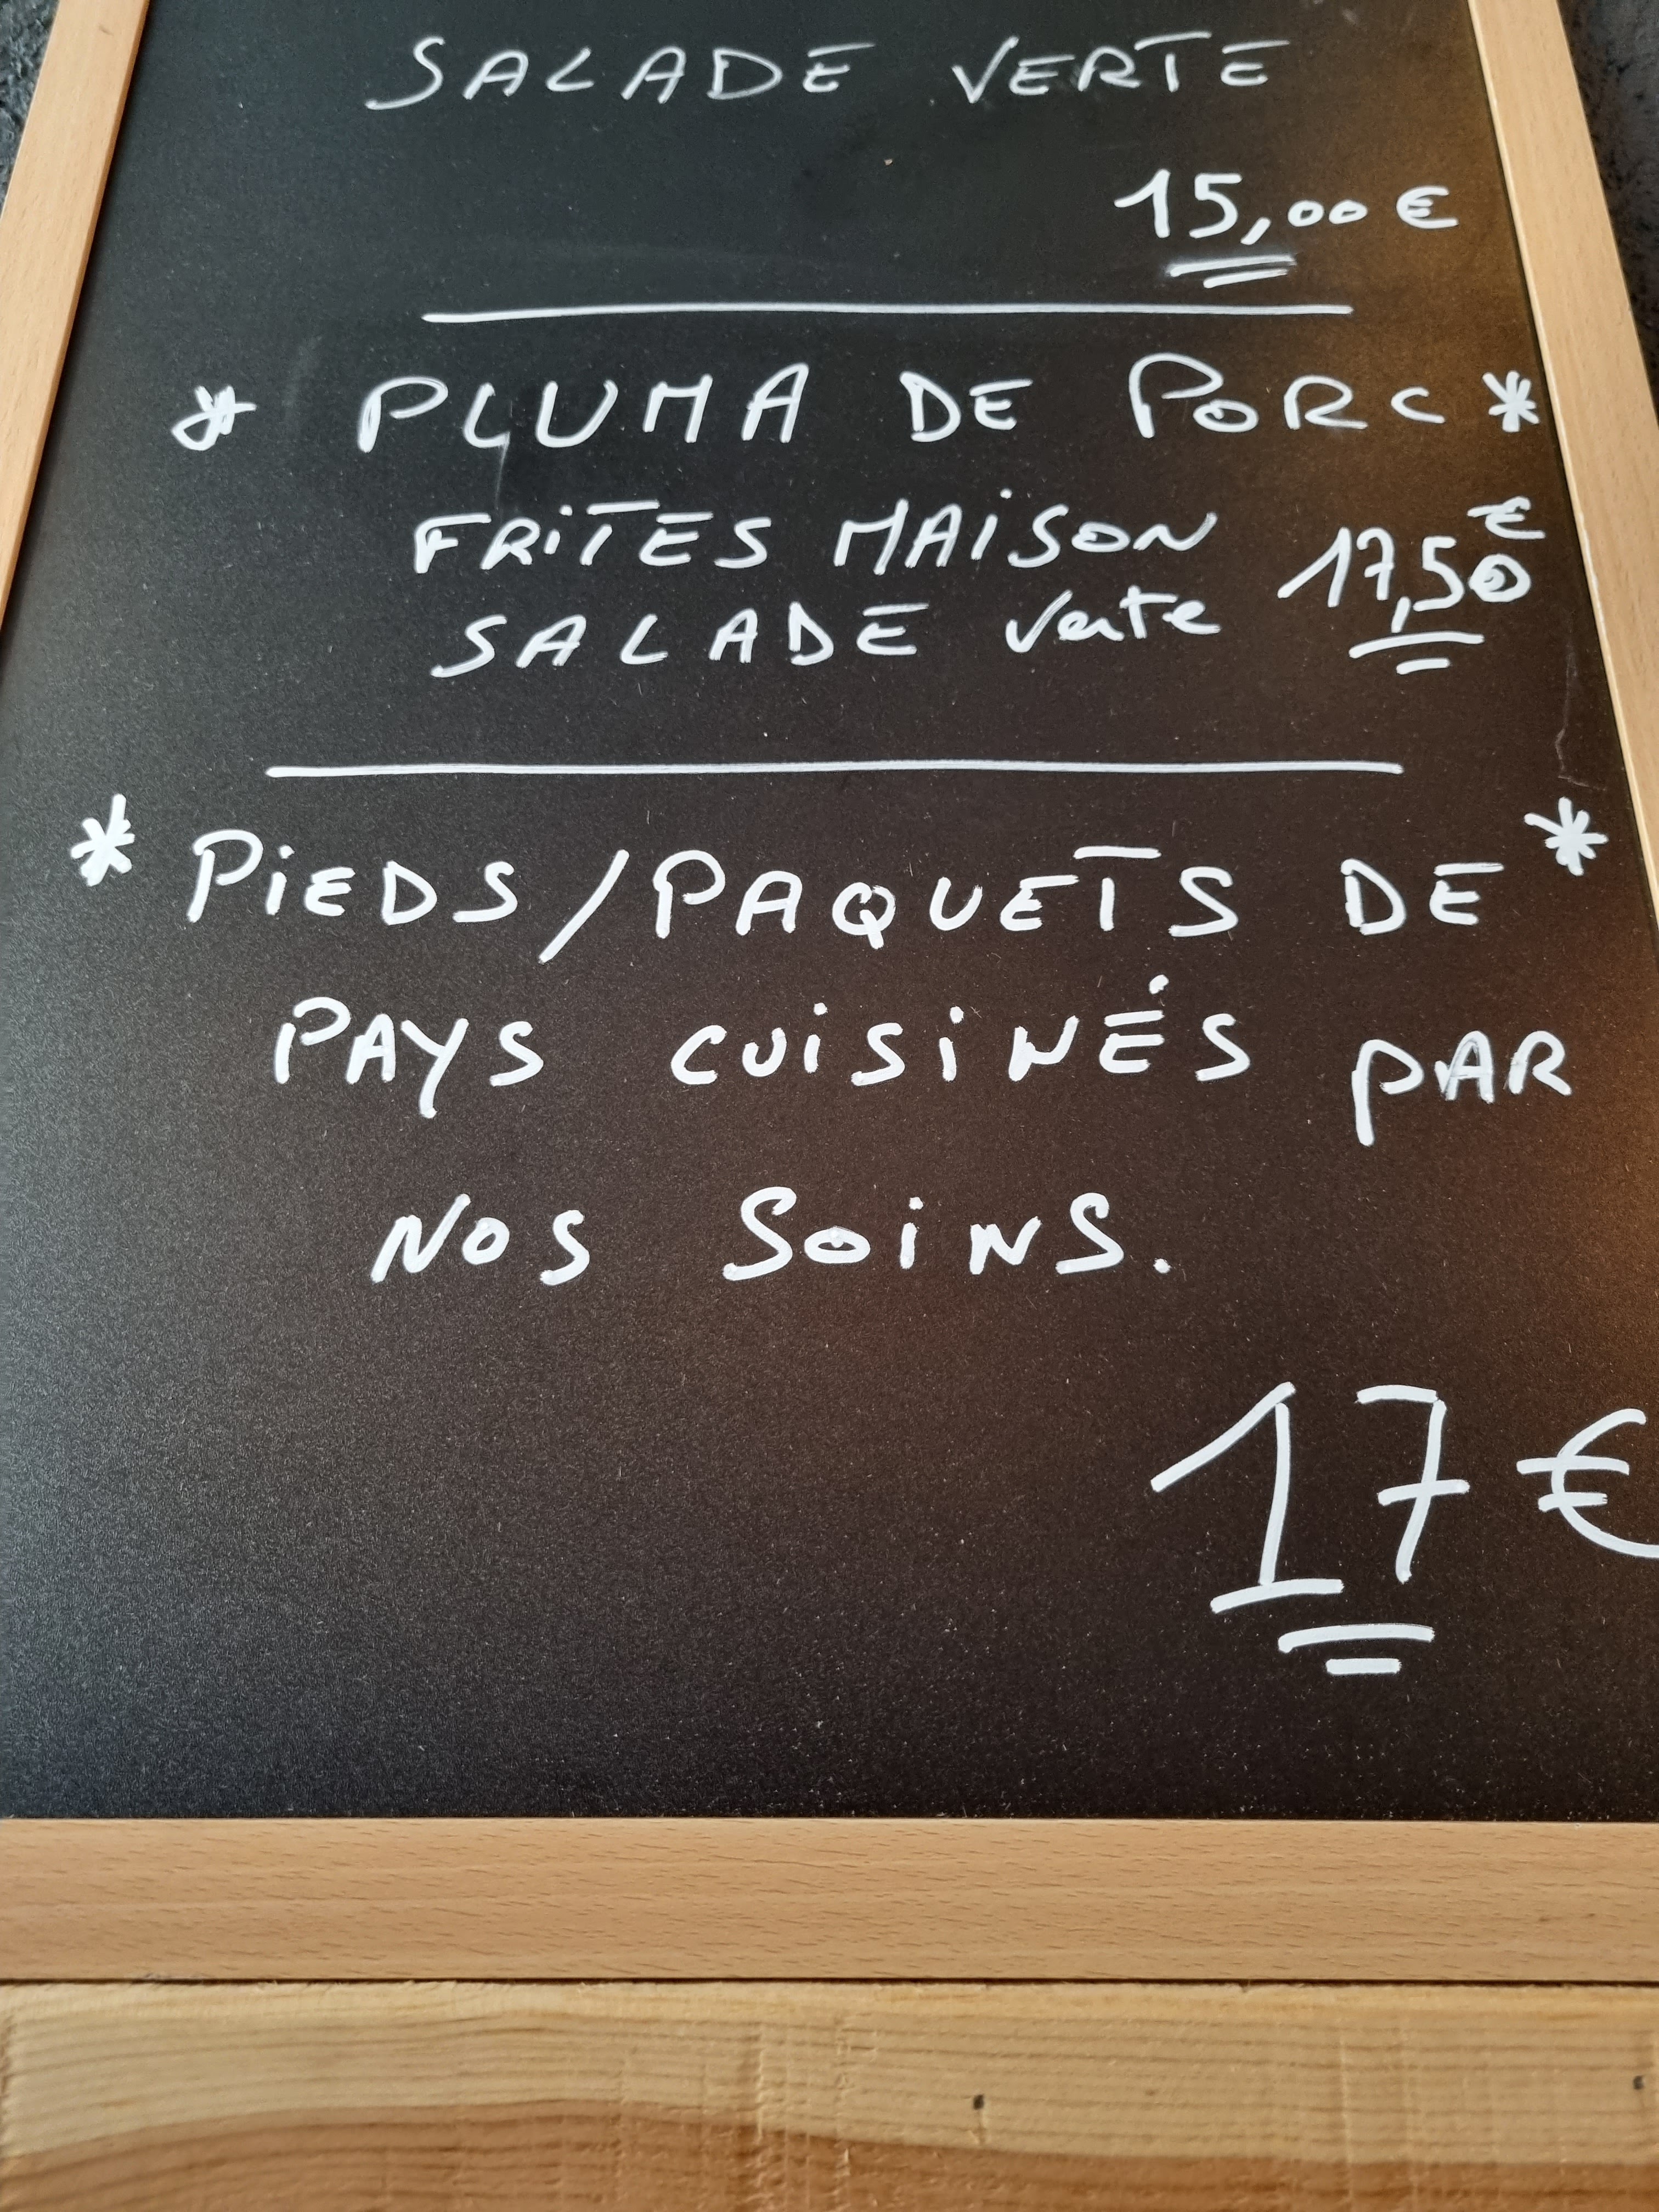 SALADE VERTE
15,00 €
* PLUMA DE PORC *
FRITES MAISON
SALADE verte 17,50 €
* PIEDS/PAQUETS DE *
PAYS CUISINÉS PAR
NOS SOINS.
17 €